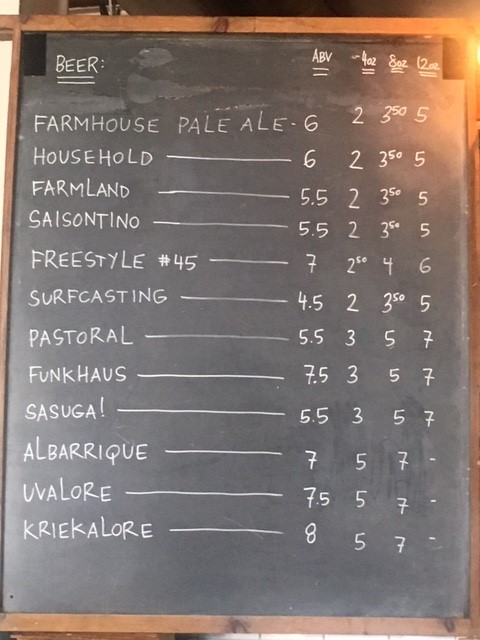 BEER: ABV 4oz 8oz 12oz
FARMHOUSE PALE ALE - 6 2 3⁵⁰ 5
HOUSEHOLD 6 2 3⁵⁰ 5
FARMLAND 5.5 2 3⁵⁰ 5
SAISONTINO 5.5 2 3⁵⁰ 5
FREESTYLE #45 7 2⁵⁰ 4 6
SURFCASTING 4.5 2 3⁵⁰ 5
PASTORAL 5.5 3 5 7
FUNKHAUS 7.5 3 5 7
SASUGA! 5.5 3 5 7
ALBARRIQUE 7 5 7 -
UVALORE 7.5 5 7 -
KRIEKALORE 8 5 7 -